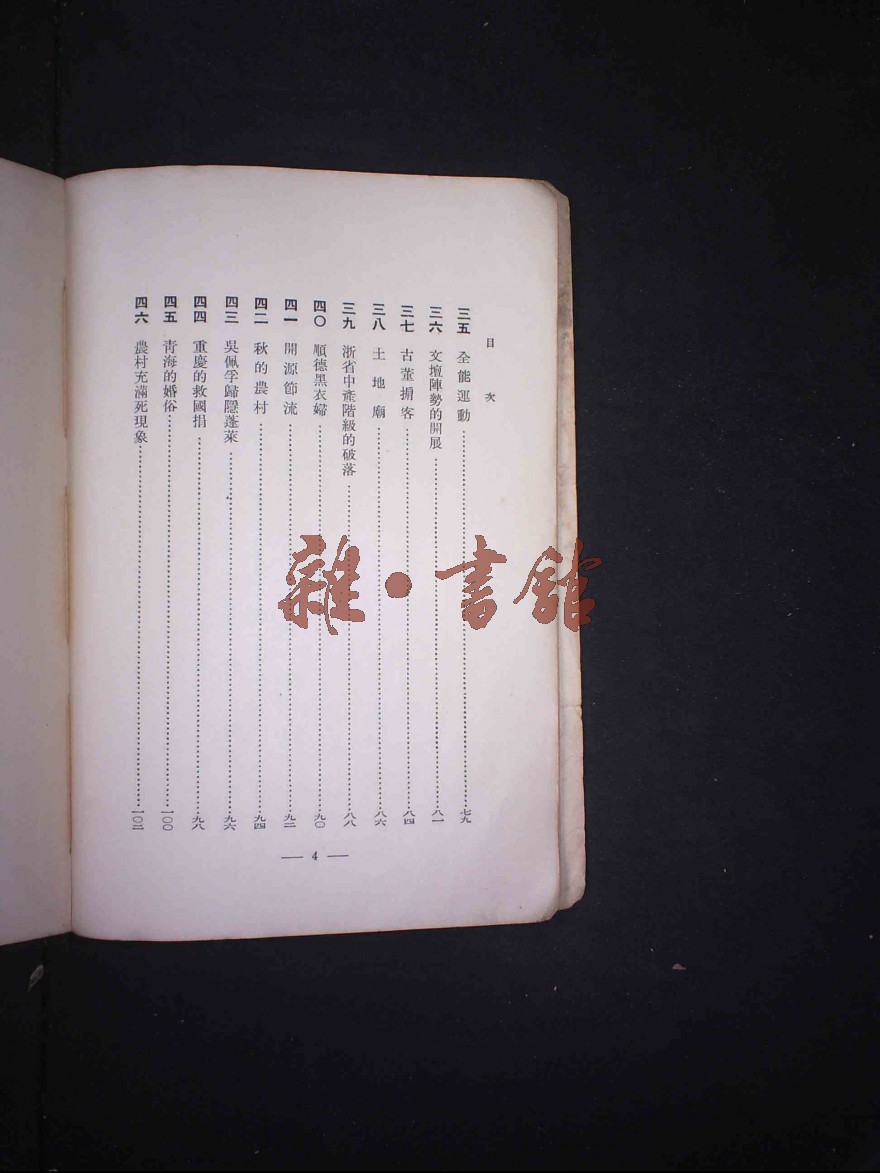 目次
三五 全能運動……七九
三六 文壇陣勢的開展……八一
三七 古董掮客……八四
三八 土地廟……八六
三九 浙省中產階級的破落……八八
四〇 順德黑衣婦……九〇
四一 開源節流……九二
四二 秋的農村……九四
四三 吳佩孚歸隱蓬萊……九六
四四 重慶的救國捐……九八
四五 青海的婚俗……一〇〇
四六 農村充滿死現象……一〇二
— 4 —
雜·書館